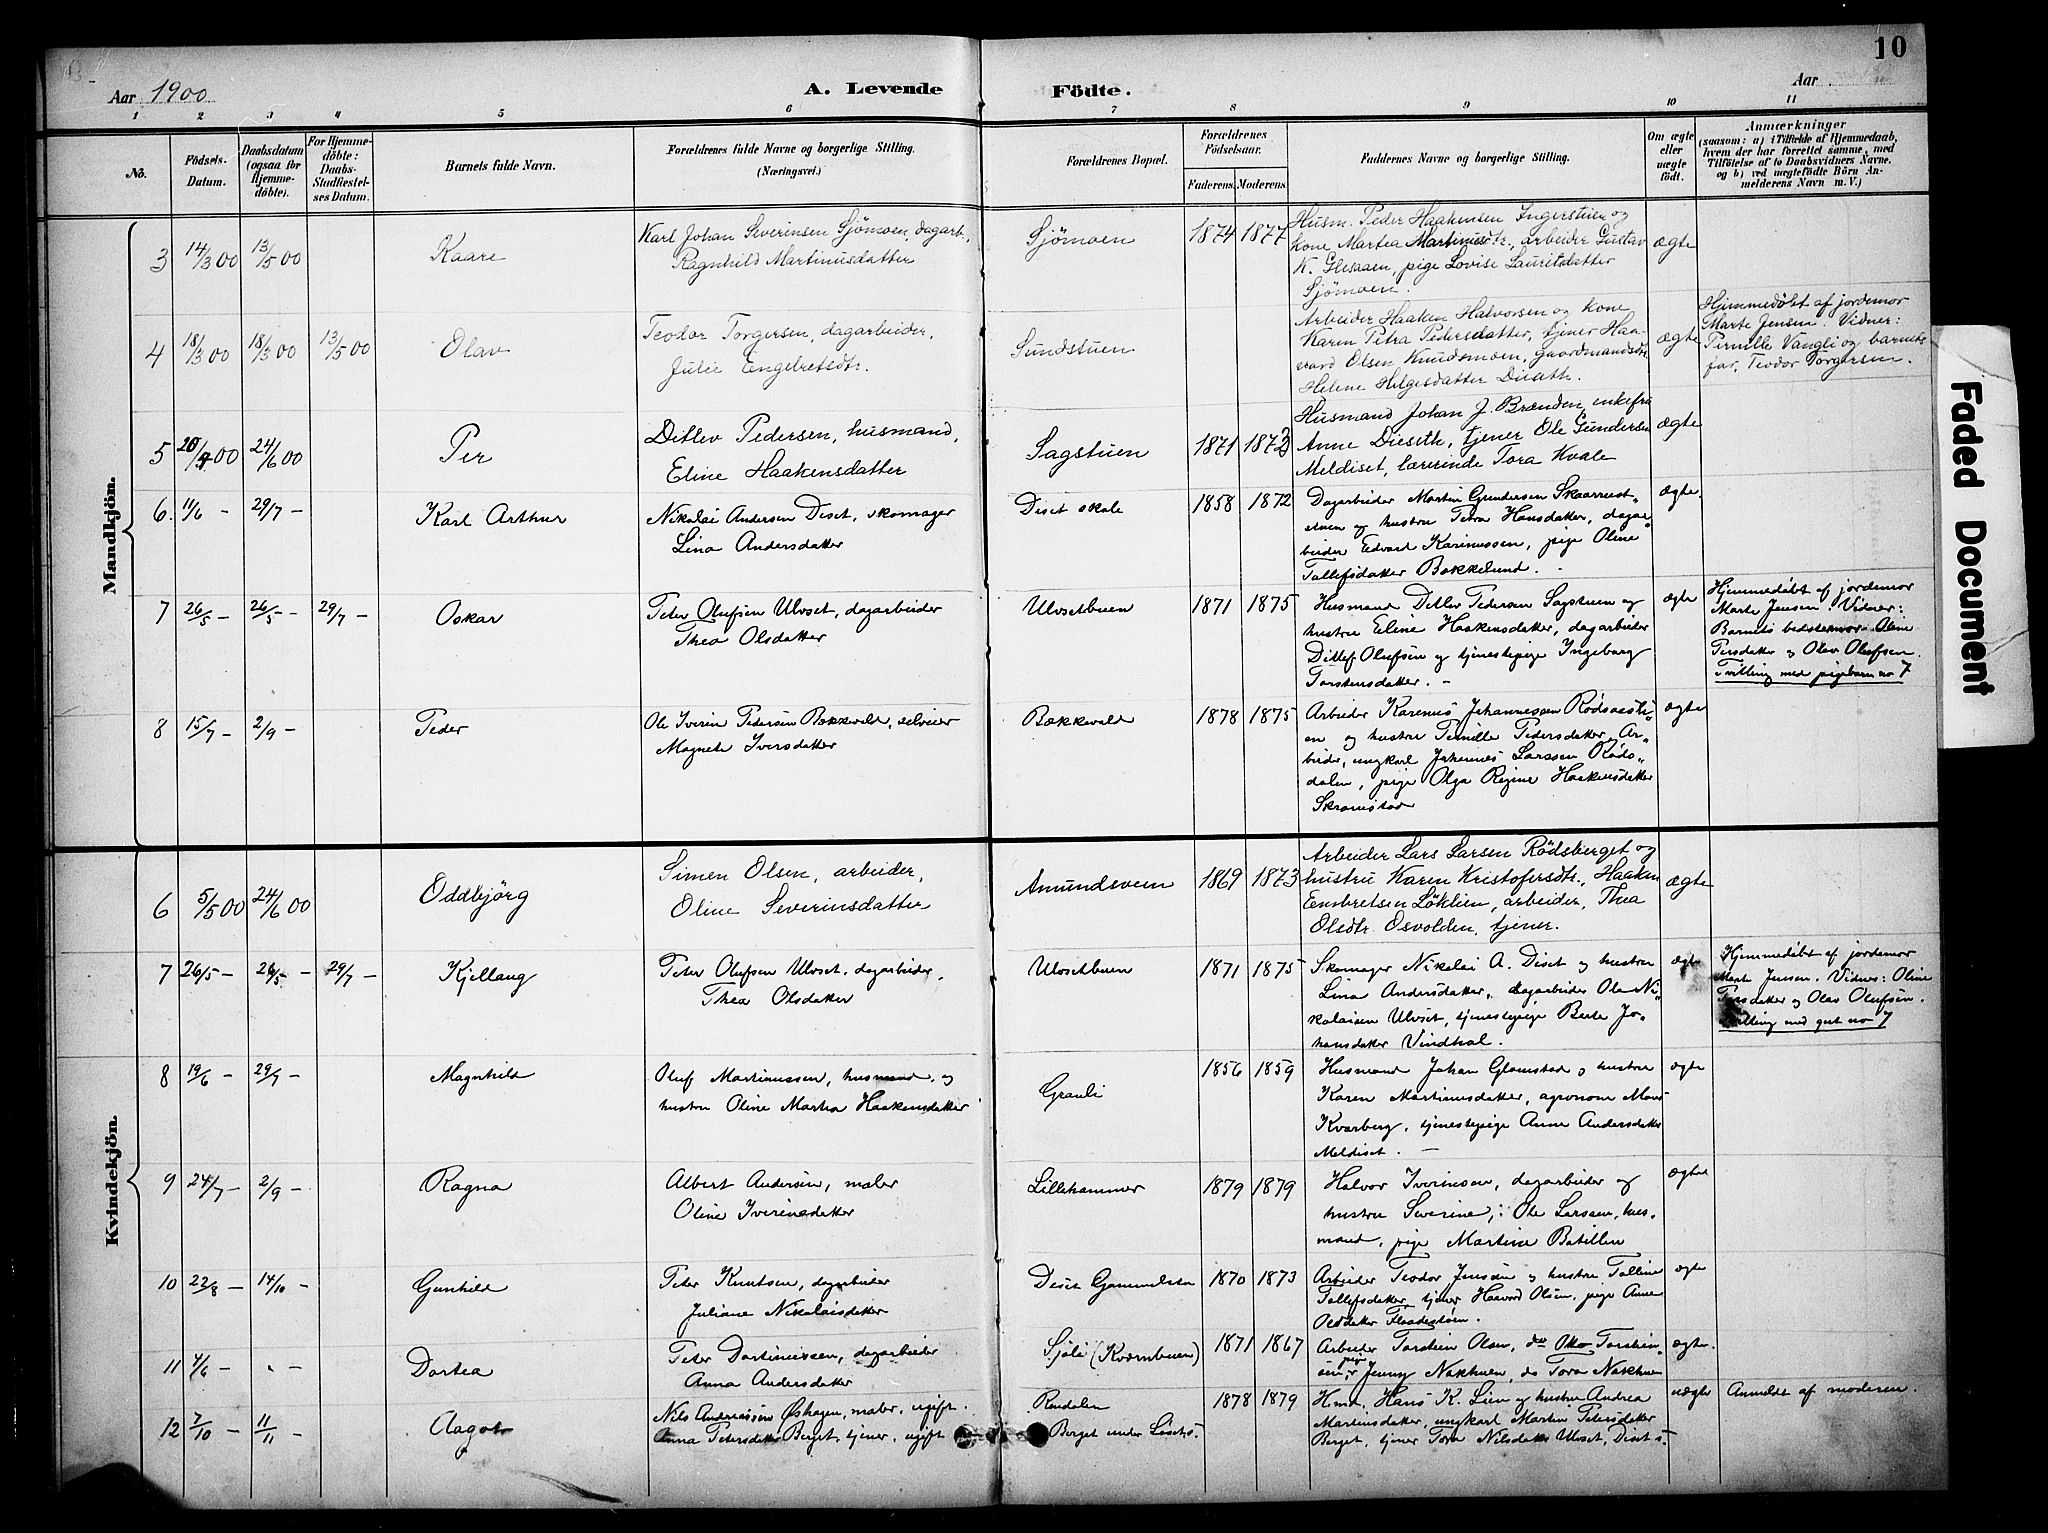 10
Aar 1900
A. Levende Födte.
Aar
1 2 3 4 5 6 7 8 9 10 11
No. Födsels-Datum. Daabsdatum (ogsaa for Hjemmedöbte). For Hjemmedöbte: Daabs-Stadfæstelses Datum. Barnets fulde Navn. Forældrenes fulde Navne og borgerlige Stilling. (Næringsvei.) Forældrenes Bopæl. Forældrenes Födselsaar. Faderens. Moderens. Faddernes Navne og borgerlige Stilling. Om ægte eller uægte födt. Anmærkninger (saasom: a) i Tilfælde af Hjemmedaab, hvem der har forrettet samme, med Tilföielse af to Daabsvidners Navne, og b) ved uægtefödte Börn Anmelderens Navn m. V.)
Mandkjön.
3 14/3 00 13/5 00 Kaare
Karl Johan Severinsen Sjömoen, dagarb.,
Ragnhild Martinusdatter
Sjömoen 1874 1877
Husm. Peder Haakensen Ingerstuen og
kone Martea Martinusdtr., arbeider Gustav
K. Glesaaen, pige Lovise Lauritsdatter
Sjömoen.
ægte
4 18/3 00 18/3 00 13/5 00 Olav
Teodor Torgersen, dagarbeider,
Julie Engebretsdtr.
Sundstuen
Arbeider Haaken Halvorsen og kone
Karen Petra Pedersdatter, tjener Haa-
vard Olsen Knudsmoen, gaardmandsdtr.
Helene Helgesdatter Diseth.
ægte
Hjemmedöbt af jordemor
Marte Jensen. Vidner:
Pernille Vangli og barnets
far, Teodor Torgersen.
5 20/4 00 24/6 00 Per
Ditlev Pedersen, husmand,
Eline Haakensdatter
Sagstuen 1871 1873
Husmand Johan J. Brænden, enkefru
Anne Dieseth, tjener Ole Gundersen
Meldiset, lærerinde Tora Kvale
ægte
6. 11/6 - 29/7 - Karl Arthur
Nikolai Andersen Diset, skomager
Lina Andersdatter
Diset skole 1858 1872
Dagarbeider Martin Gundersen Skaarrust-
stuen og hustru Petra Hansdatter, dagar-
beider Edvard Karinussen, pige Oline
Tollefsdatter Bækkelund. -
ægte.
7 26/5 - 26/5 - 29/7 - Oskar
Peter Olufsen Ulvset, dagarbeider
Thea Olsdatter
Ulvsetbuen 1871 1875
Husmand Ditlev Pedersen Sagstuen og
hustru Eline Haakensdatter, dagarbeider
Ditlef Olufsen og tjenestepige Ingeborg
Torstensdatter. -
ægte
Hjemmedöbt af jordemor
Marte Jensen. Vidner:
Barnets bedstemor Oline
Persdatter og Olav Olufsen.
Tvilling med pigebarn no 7
8 15/7 - 2/9 - Peder
Ole Iverin Pedersen Bækkevold, selveier
Magnete Iversdatter
Bækkevold 1878 1875
Arbeider Karenus Johannesen Rödsæstu-
en og hustru Pernille Pedersdatter, Ar-
beider, ungkarl Johannes Larssen Röds-
dalen, pige Olga Regine Haakensdatter
Skramstad
ægte
Kvindekjön.
6 5/5 00 24/6 00 Oddbjörg
Simen Olsen, arbeider,
Oline Severinsdatter
Amundsveen 1869 1873
Arbeider Lars Larsen Rödsberget og
hustru Karen Kristofersdtr., Haaken
Eenbretsen Löklien, arbeider, Thea
Olsdtr. Osvolden, tjener.
ægte
7 26/5 - 26/5 - 29/7 - Kjellaug
Peter Olufsen Ulvset, dagarbeider,
Thea Olsdatter
Ulvsetbuen 1871 1875
Skomager Nikolai A. Diset og hustru
Lina Andersdatter, dagarbeider Ole Ni-
kolaisen Ulvset, tjenestepige Berte Jo-
hansdatter Vindhol.
ægte
Hjemmedöbt af jordemor
Marte Jensen. Vidner: Oline
Persdatter og Olav Olufsen.
Tvilling med gut no 7
8 19/6 - 29/7 - Magnhild
Oluf Martinussen, husmand, og
hustru Oline Martea Haakensdatter
Grauli 1856 1859
Husmand Johan Glomstad og hustru
Karen Martinusdatter, agronom Mons
Kvarberg, tjenestepige Anne Andersdatter
Meldiset. -
ægte
9 24/7 - 2/9 - Ragna
Albert Andersen, maler
Oline Iverinsdatter
Lillehammer 1879 1879
Halvor Iverinsen, dagarbeider og
hustru Severine, Ole Larssen, hus-
mand, pige Martine Botillen
ægte
10 22/8 - 14/10 - Gunhild
Peter Knutsen, dagarbeider
Juliane Nikolaisdatter
Diset Gammelstu 1870 1873
Arbeider Teodor Jensen og hustru Tolline
Tollefsdatter, tjener Haavard Olsen, pige Anne
Olsdatter Flaadestöen.
ægte
11 4/6 - " - Dortea
Peter Dortinussen, dagarbeider
Anna Andersdatter
Sjöli (Kværnbuen) 1871 1867
Arbeider Torstein Olsen, do Otto Torstein-
sen, pige Jenny Nokhuen, do Tora Nokhuen
ægte.
12 7/10 - 11/11 - Aagot
Nils Andreassen Öshagen, maler, ugift.
Anna Petersdatter Berget, tjener, ugift
Rendalen
Berget under Löset s.
1878 1879
Hmd. Hans K. Lien og hustru Andrea
Martinsdatter, ungkarl Martin Petersdatter
Berget, tjener Tora Nilsdatter Ulvset, Diset s.
uægte
Anmeldt af moderen.
Faded Document